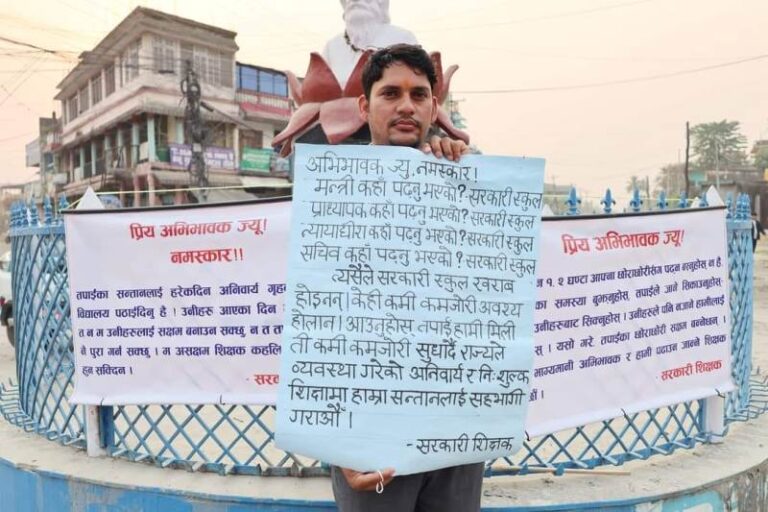 अभिभावक ज्यू, नमस्कार!
मन्त्री कहाँ पढ्नु भएको? सरकारी स्कुल
प्राध्यापक कहाँ पढ्नु भएको? सरकारी स्कुल
न्यायाधीश कहाँ पढ्नु भएको? सरकारी स्कुल
सचिव कहाँ पढ्नु भएको? सरकारी स्कुल
त्यसैले सरकारी स्कुल खराब
होइनन्। केही कमी कमजोरी अवश्य
होलान्। आउनुहोस् तपाईं हामी मिली
ती कमी कमजोरी सुधार्दै राज्यले
व्यवस्था गरेको अनिवार्य र निःशुल्क
शिक्षामा हाम्रा सन्तानलाई सहभागी
गराऔं।
- सरकारी शिक्षक
प्रिय अभिभावक ज्यू!
नमस्कार!!
तपाईंका सन्तानलाई हरेकदिन अनिवार्य गृह
विद्यालय पठाईदिनु है । उनीहरु आएका दिन
त न म उनीहरुलाई सक्षम बनाउन सक्छु न त
नै पुरा गर्न सक्छु । म असक्षम शिक्षक कहलि
हुन सक्दिन ।
- सरका
प्रिय अभिभावक ज्यू!
न १, २ घण्टा आफ्ना छोराछोरीसँग पढ्न बस्नुहोस् न है ।
का समस्या बुझ्नुहोस्, तपाईंले जाने सिकाउनुहोस्,
उनीहरुबाट सिक्नुहोस् । उनीहरुले पनि नजाने हामीलाई
। यसो गरे तपाईंका छोराछोरी सक्षम बन्नेछन् ।
भाग्यमानी अभिभावक र हामी पढाउन जान्ने शिक्षक
औं ।
- सरकारी शिक्षक